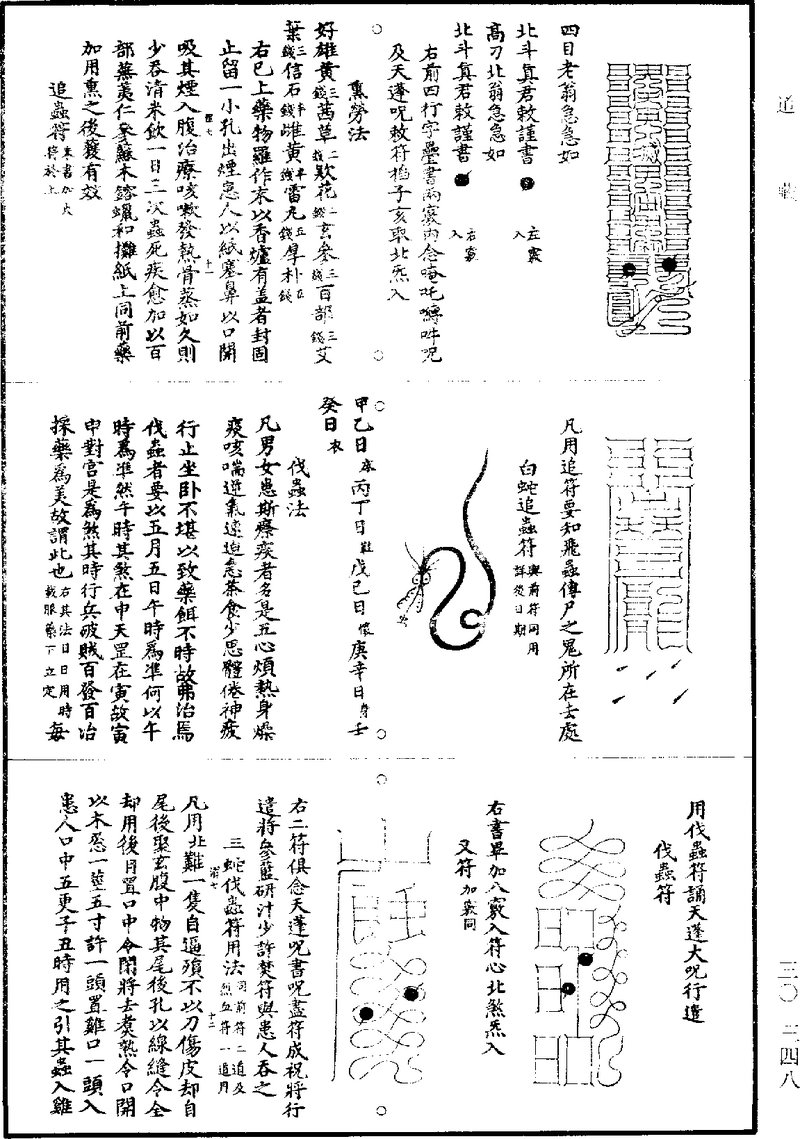 道藏
三〇—三四八
四目老翁急急如
北斗真君敕謹書 左竅入
高刁北翁急急如
北斗真君敕謹書 右竅入
右前四行字疊書兩竅內念唵吒嚩吽呪
及天蓬呪敕符掐子亥取北炁入
熏勞法
好雄黃三錢茜草二錢欵花二錢玄參三錢百部三錢艾
葉三錢信石半錢雌黃半錢雷丸五錢厚朴五錢
右已上藥物羅作末以香爐有蓋者封固
止留一小孔出煙患人以紙塞鼻以口開
吸其煙入腹治療咳嗽發熱骨蒸如久則
少吞清米飲一日三次蟲死疾愈加以百
部蕪荑仁參蘇木鎔蠟和攤紙上同前藥
加用熏之後蔑有效
追蟲符 朱書加火符於上
凡用追符要知飛蟲傳尸之鬼所在去處
白蛇追蟲符 與前符同用詳後日期
甲乙日 丙丁日 戊己日 庚辛日 壬
癸日
伐蟲法
凡男女患斯瘵疾者名是五心煩熱身燥
痰咳喘逆氣速迫急茶食少思體倦神疲
行止坐卧不堪以致藥餌不時故弗治焉
伐蟲者要以五月五日午時為準何以午
時為準然午時其煞在申天罡在寅故寅
申對宮是為煞其時行兵破賊百發百治
採藥為美故謂此也 右其法日日用時 每
用伐蟲符誦天蓬大呪行遣
伐蟲符
右書畢加八竅入符心北煞炁入
又符 加竅同
右二符俱念天蓬呪書呪盡符成祝將行
遣將參藍研汁少許焚符與患人吞之
三蛇伐蟲符用法 同前符二道及烈血符一道用
凡用北雞一隻自逼殞不以刀傷皮却自
尾後聚玄腹中物其尾後孔以線縫令全
却用後月置口中令閉將去煑熟令口開
以木悉一莖五寸許一頭置雞口一頭入
患人口中五更子丑時用之引其蟲入雞